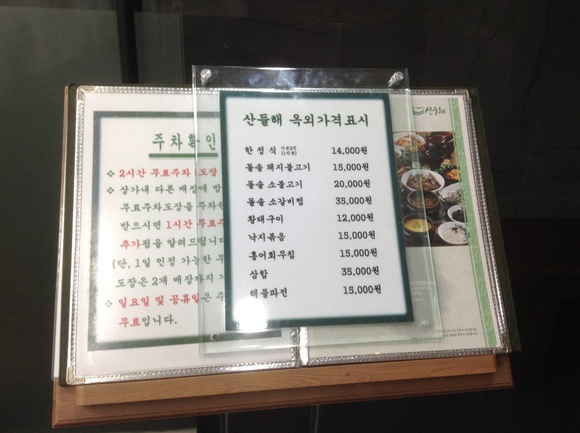 주차확인
❖ 2시간 무료주차 도장
❖ 상가내 다른 매장에
무료주차도장을
받으시면 1시간 무료
추가됨을 알려드립니다
(단, 1일 인정 가능한
도장은 2개 매장까지
❖ 일요일 및 공휴일은
무료입니다.
산들해 옥외가격표시
한정식 14,000원
돌솥 돼지불고기 15,000원
돌솥 소불고기 20,000원
돌솥 소갈비찜 35,000원
황태구이 12,000원
낙지볶음 15,000원
홍어회무침 15,000원
삼합 35,000원
해물파전 15,000원
산들해